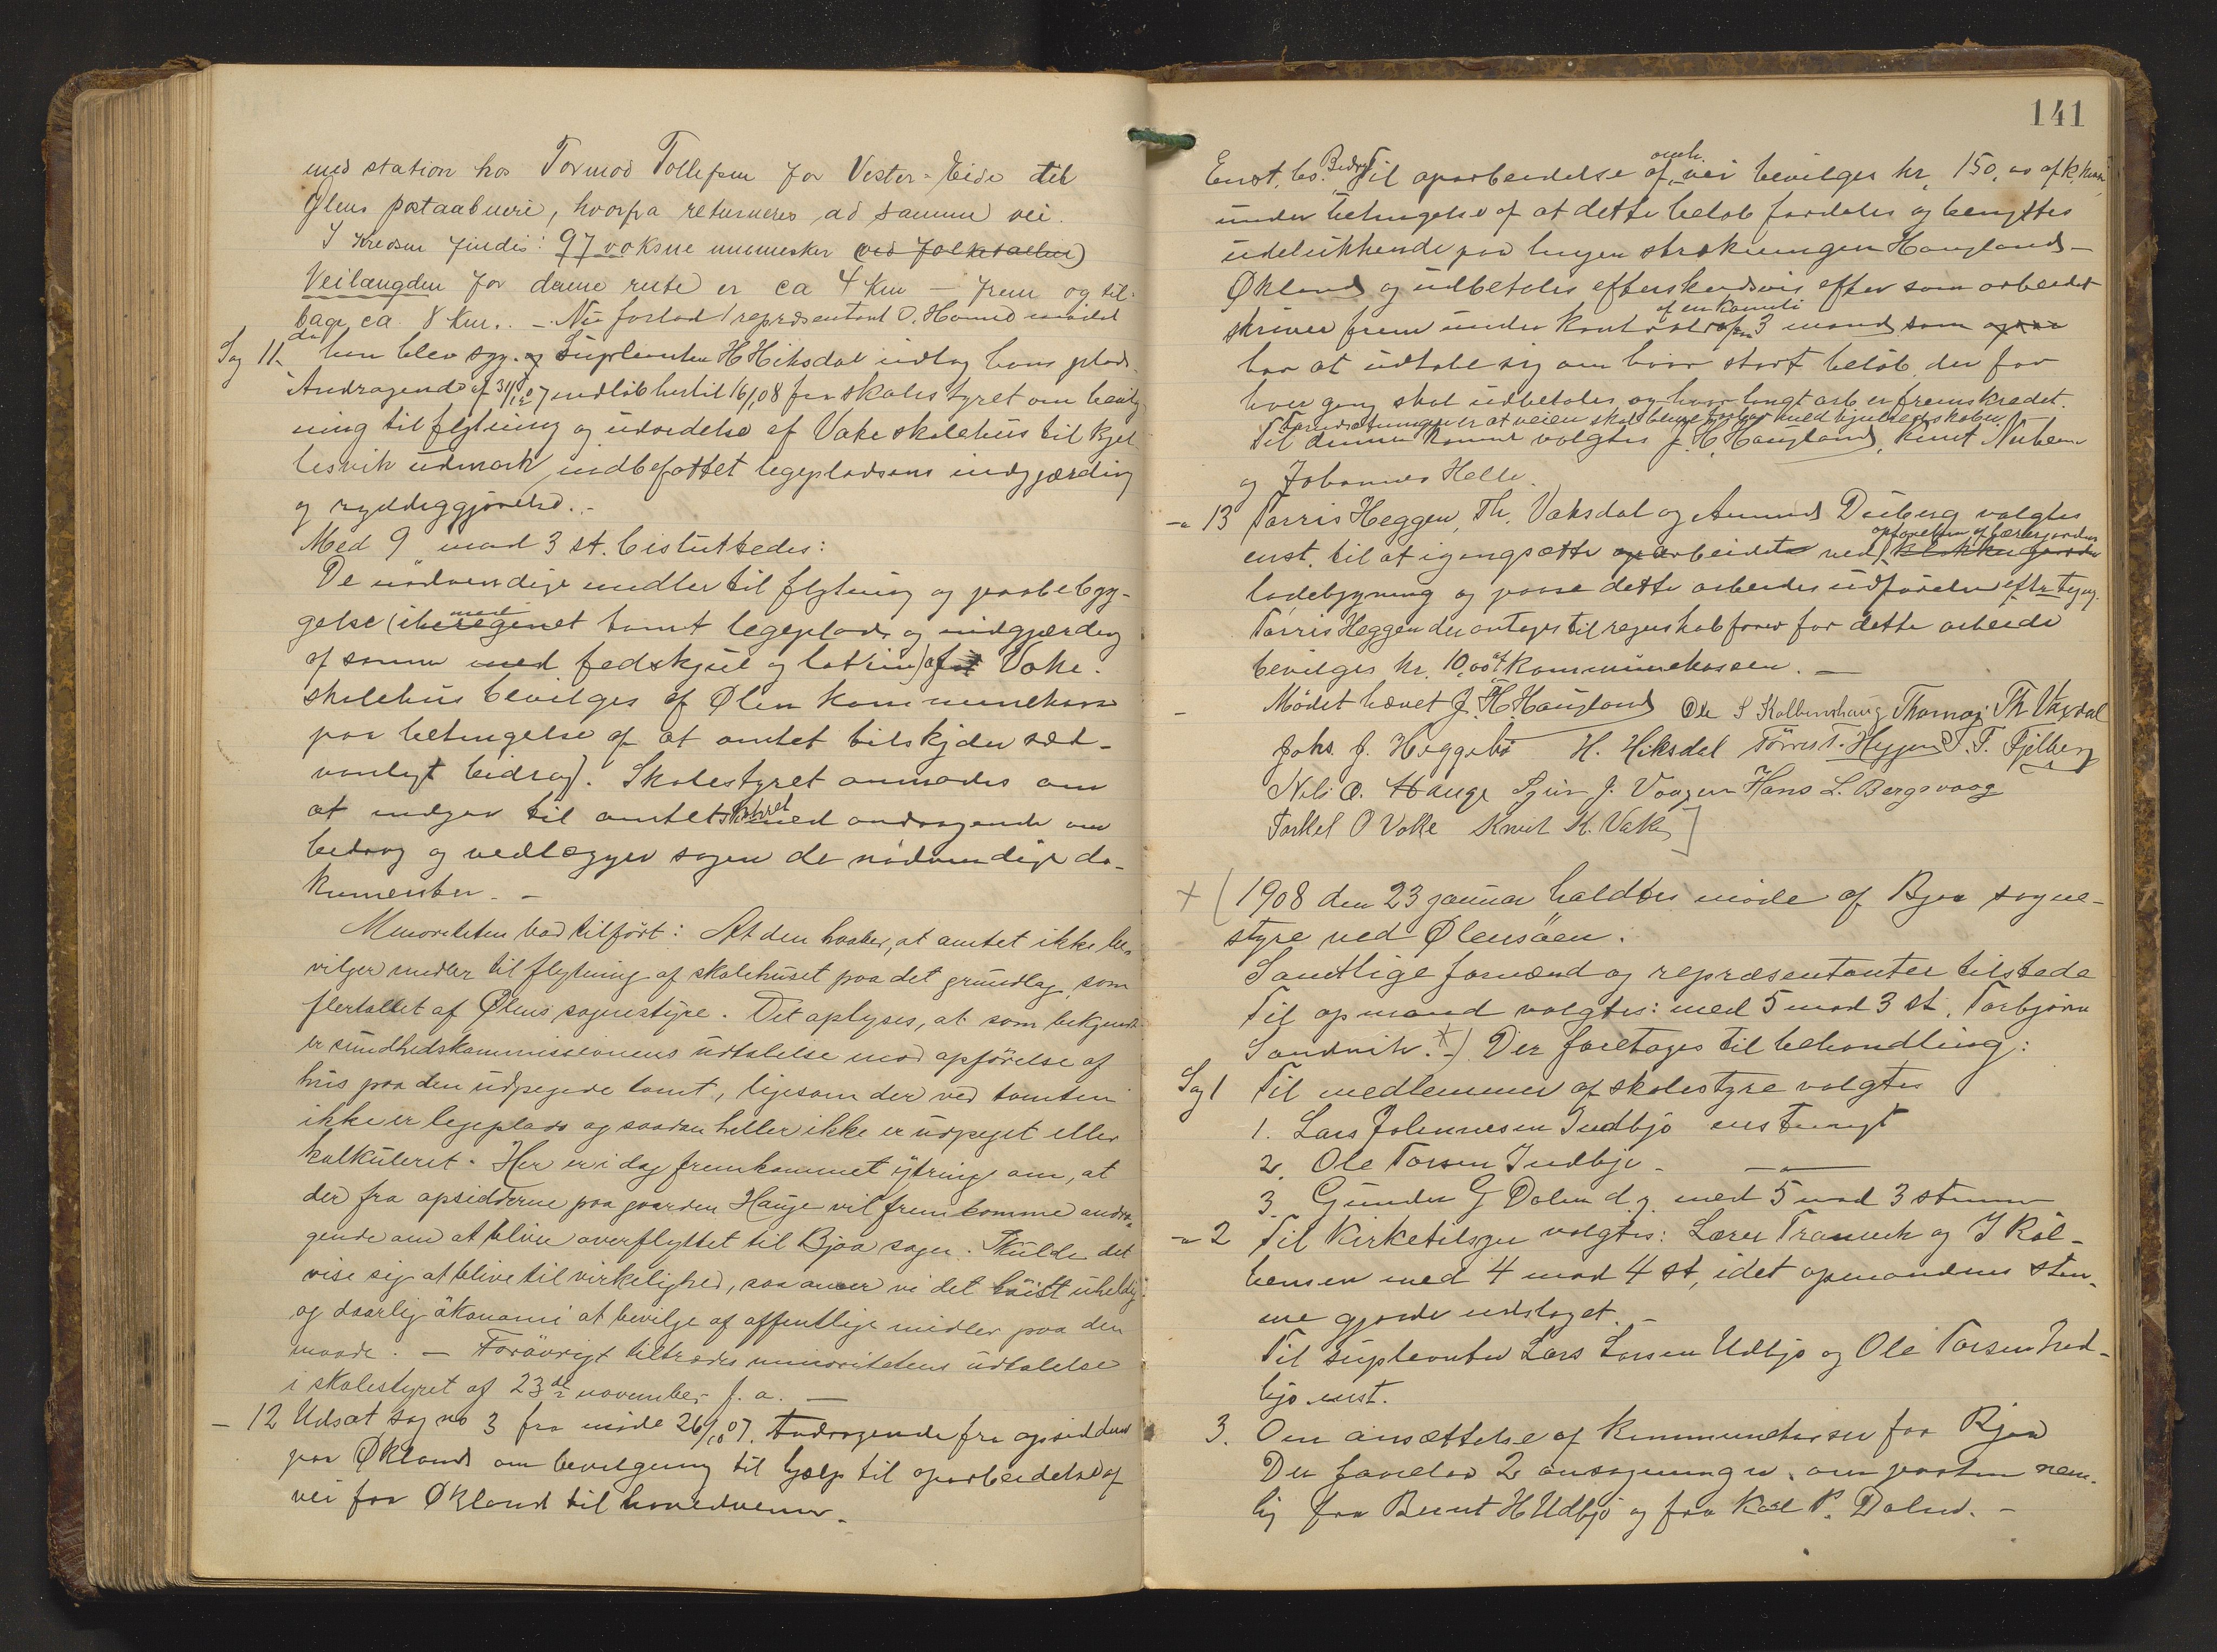 med station hos Tormod Tollefsen for Vester-Eide til
Ølens postaabneri, hvorfra returneres ad samme vei.
I Kredsen findes: 97 voksne mennesker (ved folketallen)
Veilængden for denne rute er ca 4 km — frem og til-
bage ca 8 km. — Nu forlod repræsentant O. Havned mødet
da
Sag 11. han blev syg. og Suplenten H Hiksdal indtog hans plads.
Andragende af 31/12 07 indløb hertil 16/1 08 fra skolestyret om bevilg-
ning til flytning og udvidelse af Vake skolehus til Kjel-
lesvik udmark indbefattet legepladsens indgjærding
og ryddiggjørelse. -
Med 9 mod 3 st. besluttedes:
De nødvendige midler til flytning og paabebyg-
gelse (iberegnet med tomt legeplads og indgjærding
af samme med fedskjul og latrin) af Vake
skolehus bevilges af Ølen kommunekasse
paa betingelse af at amtet tilskyder sæd-
vanligt bidrag. Skolestyret anmodes om
at indgaa til amtetskolest. med andragende om
bidrag og vedlægger sagen de nødvendige do-
kumenter. -
Minoriteten bad tilført: At den haaber, at amtet ikke be-
vilger midler til flytning af skolehuset paa det grundlag, som
flertallet af Ølens sognestyre. Det oplyses, at som bekjendt
er sundhedskommissionens udtalelse mod opførelse af
hus paa den udpegede tomt, ligesom der ved tomten
ikke er legeplads og saadan heller ikke er udpeget eller
kalkuleret. Her er i dag fremkommet ytring om, at
der fra opsidderne paa gaarden Hauge vil fremkomme andra-
gende om at blive overflyttet til Bjoa sogn. Skulde det
vise sig at blive til virkelighed, saa anser vi det høist uheldig
og daarlig økonomi at bevilge af offentlige midler paa den
maade. — Forøvrigt tiltrædes minoritetens udtalelse
i skolestyret af 23de november f. a. —
— 12 Udsat sag no 3 fra møde 26/10 07. Andragende fra opsidderne
paa Økland om bevilgning til hjælp til oparbeidelse af
vei fra Økland til hovedveien. -
141
Enst. bes. Bidrag Til oparbeidelse af omh. vei bevilges kr. 150,00 af K. kasse
under betingelse af at dette beløb fordeles og benyttes
udelukkende paa lengen strækningen Haugland -
Økland og udbetales efterskudsvis efter som arbeidet
af en komite
skrider frem under kontrol af 3 mand som
har at udtale sig om hvor stort beløb der for
hver gang skal udbetales og hvor langt arb. er fremskredet.
Forudsætningen er at veien skal blive farbar med hjulredskaber.
Til denne komite valgtes J. H. Haugland, Knut Nerheim
og Johannes Helle.
— 13 Tørris Heggen, Th. Vaksdal og Amund Duberg valgtes
opførelsen af lærerjordens
enst. til at igangsætte arbeidet ved klokkergaarden
ladebygning og paase dette arbeides udførelse efter tegng.
Tørris Heggen der antages til regnskabsfører for dette arbeide
bevilges kr. 10,00 af Kommunekassen. —
Mødet hævet J. H. Haugland Ole S Kalbenshaug Thomas Th Vaxdal
Johs. J. Heggebø H. Hiksdal Tørris T. Heggen T. Fjelberg
Nils O. Hauge Sjur J. Vaagen Hans L. Bergsvaag
Torkel O Vake Knut K. Vake
× (1908 den 23 januar holdtes møde af Bjoa sogne-
styre ved Ølensøen.
Samtlige formænd og repræsentanter tilstede
Til opmand valgtes: med 5 mod 3 st. Torbjørn
Sandvik. ×) Der foretages til behandling:
Sag 1 Til medlemmer af skolestyre valgtes
1. Lars Johannesen Indbjo enstemigt
2. Ole Torsen Indbjo — " —
3. Gunder G Dalen d.y. med 5 mod 3 stemmer
— 2 Til Kirketilsyn valgtes: Lærer Tranevik og I Kol-
bensen med 4 mod 4 st, idet opmandens stem-
me gjorde udslaget. -
Til suplenter Lars Larsen Udbjo og Ole Torsen Ind-
bjo enst.
3. Om ansættelse af Kommunekasser for Bjoa
Der forelaa 2 ansøgninger om posten nem-
lig fra Bernt H Udbjo og fra Karl P. Dalen. -